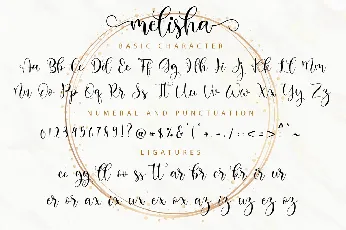 melisha
BASIC CHARACTER
Aa Bb Cc Dd Ee Ff Gg Hh Ii Jj Kk Ll Mm
Nn Oo Pp Qq Rr Ss Tt Uu Vv Ww Xx Yy Zz
NUMERAL AND PUNCTUATION
0123456789!?@*$%&
LIGATURES
cc gg ll oo ss tt ar br cr kr ir ur
er or ax ix ux ex ox az iz uz ez oz